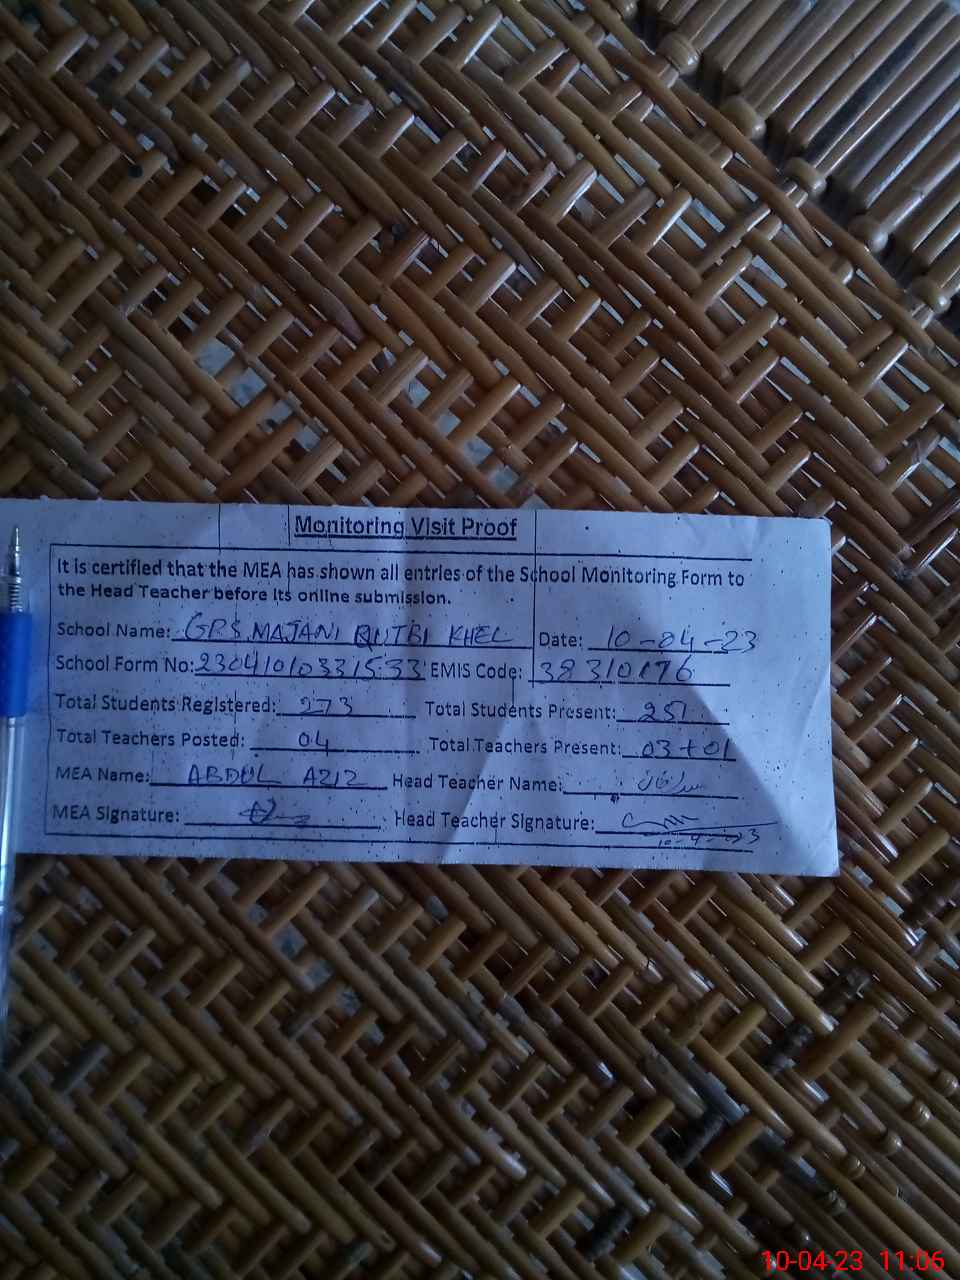 Monitoring Visit Proof
It is certified that the MEA has shown all entries of the School Monitoring Form to
the Head Teacher before its online submission.
School Name: GPS MAJANI QUTBI KHEL Date: 10-04-23
School Form No: 23041010331533 EMIS Code: 38310176
Total Students Registered: 273 Total Students Present: 251
Total Teachers Posted: 04 Total Teachers Present: 03+01
MEA Name: ABDUL AZIZ Head Teacher Name:
MEA Signature: Head Teacher Signature:
10-04-23 11:06